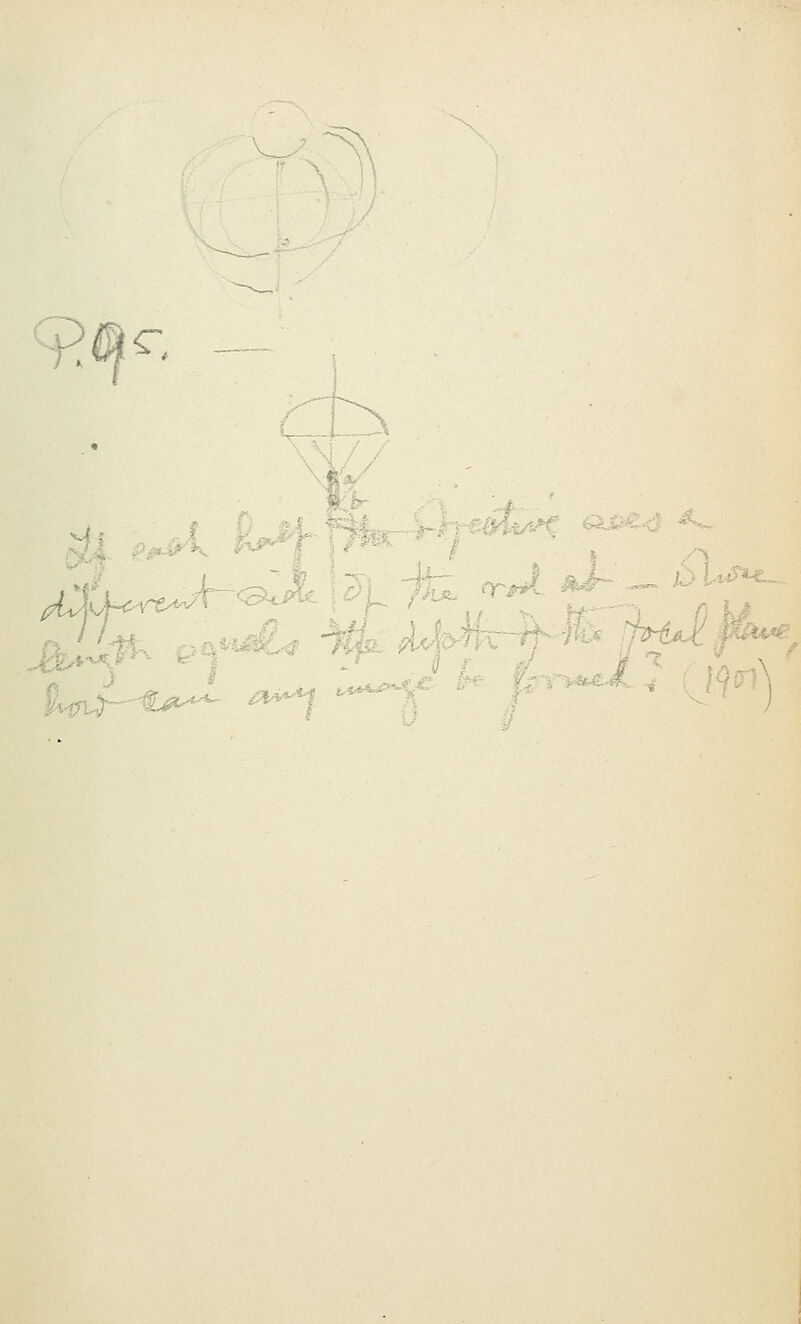 P.95. —
If each half the objective uses a
different side of the rod ab — whose
length equals the depth of the focal plane,
how can any image be formed? (1901)